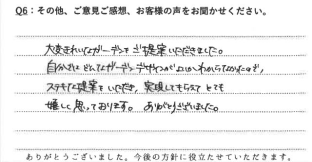 Q6：その他、ご意見ご感想、お客様の声をお聞かせください。
大変きれいなガーデンをご提案いただきました。
自分ではどんなガーデンデザインが良いかわからなかったので、
ステキな提案をいただき、実現してもらえてとても
嬉しく思っております。ありがとうございました。
ありがとうございました。今後の方針に役立たせていただきます。